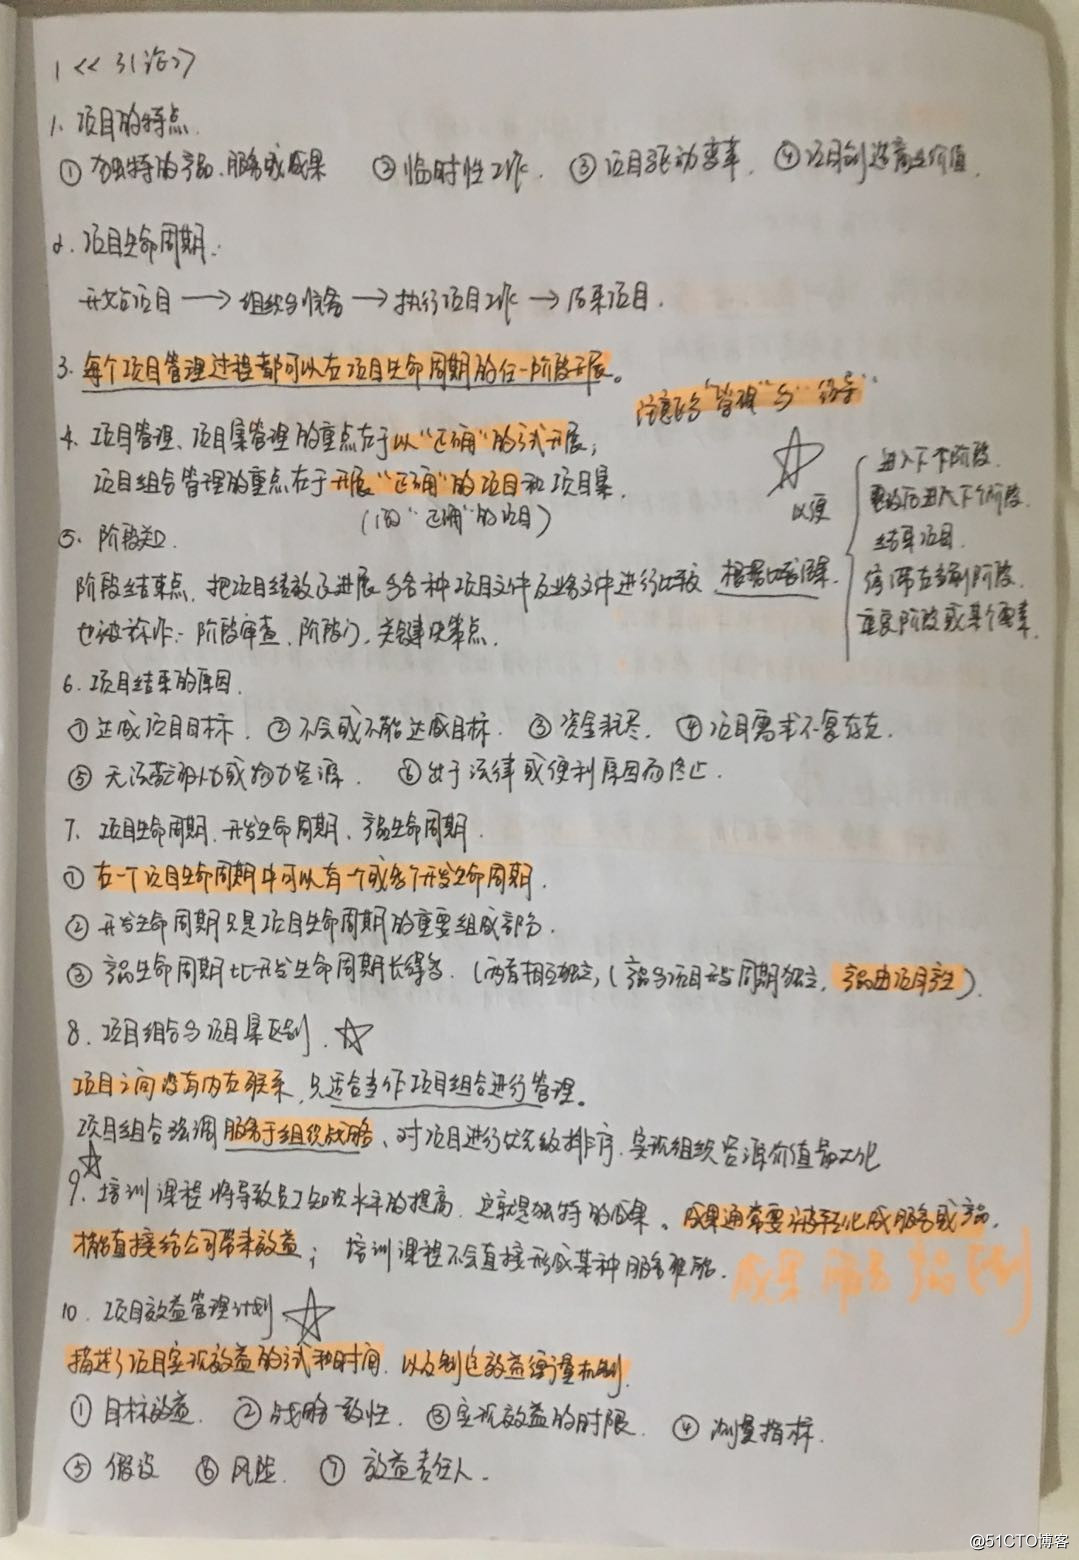 1 <<引论>>
1. 项目的特点.
① 独特的产品、服务或成果 ② 临时性工作. ③ 项目驱动变革. ④ 项目创造商业价值.
2. 项目生命周期:
开始项目 → 组织与准备 → 执行项目工作 → 结束项目.
3. 每个项目管理过程都可以在项目生命周期的任一阶段开展。
注意区分"管理"与"领导".
4. 项目管理、项目集管理的重点在于以"正确"的方式开展;
项目组合管理的重点在于开展"正确"的项目和项目集.
("正确"的项目)
5. 阶段关口.
阶段结束点. 把项目绩效及进展与各种项目文件及业务文件进行比较 根据比较结果. 以便
进入下个阶段.
整改后进入下个阶段.
结束项目.
停滞在当前阶段.
重复阶段或某个要素.
也被称作:阶段审查、阶段门、关键决策点.
6. 项目结束的原因.
① 达成项目目标. ② 不会或不能达成目标. ③ 资金耗尽. ④ 项目需求不复存在.
⑤ 无法获取人力或物力资源. ⑥ 出于法律或便利原因而终止.
7. 项目生命周期、开发生命周期、产品生命周期.
① 在一个项目生命周期中可以有一个或多个开发生命周期.
② 开发生命周期只是项目生命周期的重要组成部分.
③ 产品生命周期比开发生命周期长得多. (两者相互独立, (产品与项目开发周期独立, 产品由项目产生).
8. 项目组合与项目集区别. ☆
项目之间没有内在联系, 只适合当作项目组合进行管理。
项目组合强调服务于组织战略、对项目进行优先级排序. 实现组织资源价值最大化
☆
9. 培训课程将导致员工知识水平的提高. 这就是独特的成果。成果通常要被转化成服务或产品,
才能直接给公司带来效益; 培训课程不会直接形成某种服务能力.
成果 服务 产品 区别
10. 项目效益管理计划 ☆
描述了项目实现效益的方式和时间. 以及制定效益衡量机制.
① 目标效益. ② 战略一致性. ③ 实现效益的时限. ④ 测量指标.
⑤ 假设 ⑥ 风险. ⑦ 效益责任人.
@51CTO博客